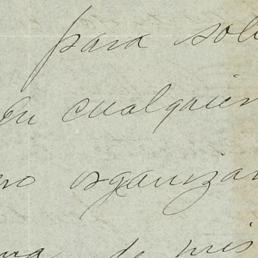 para sol
En cualquier
no organizar
de pris